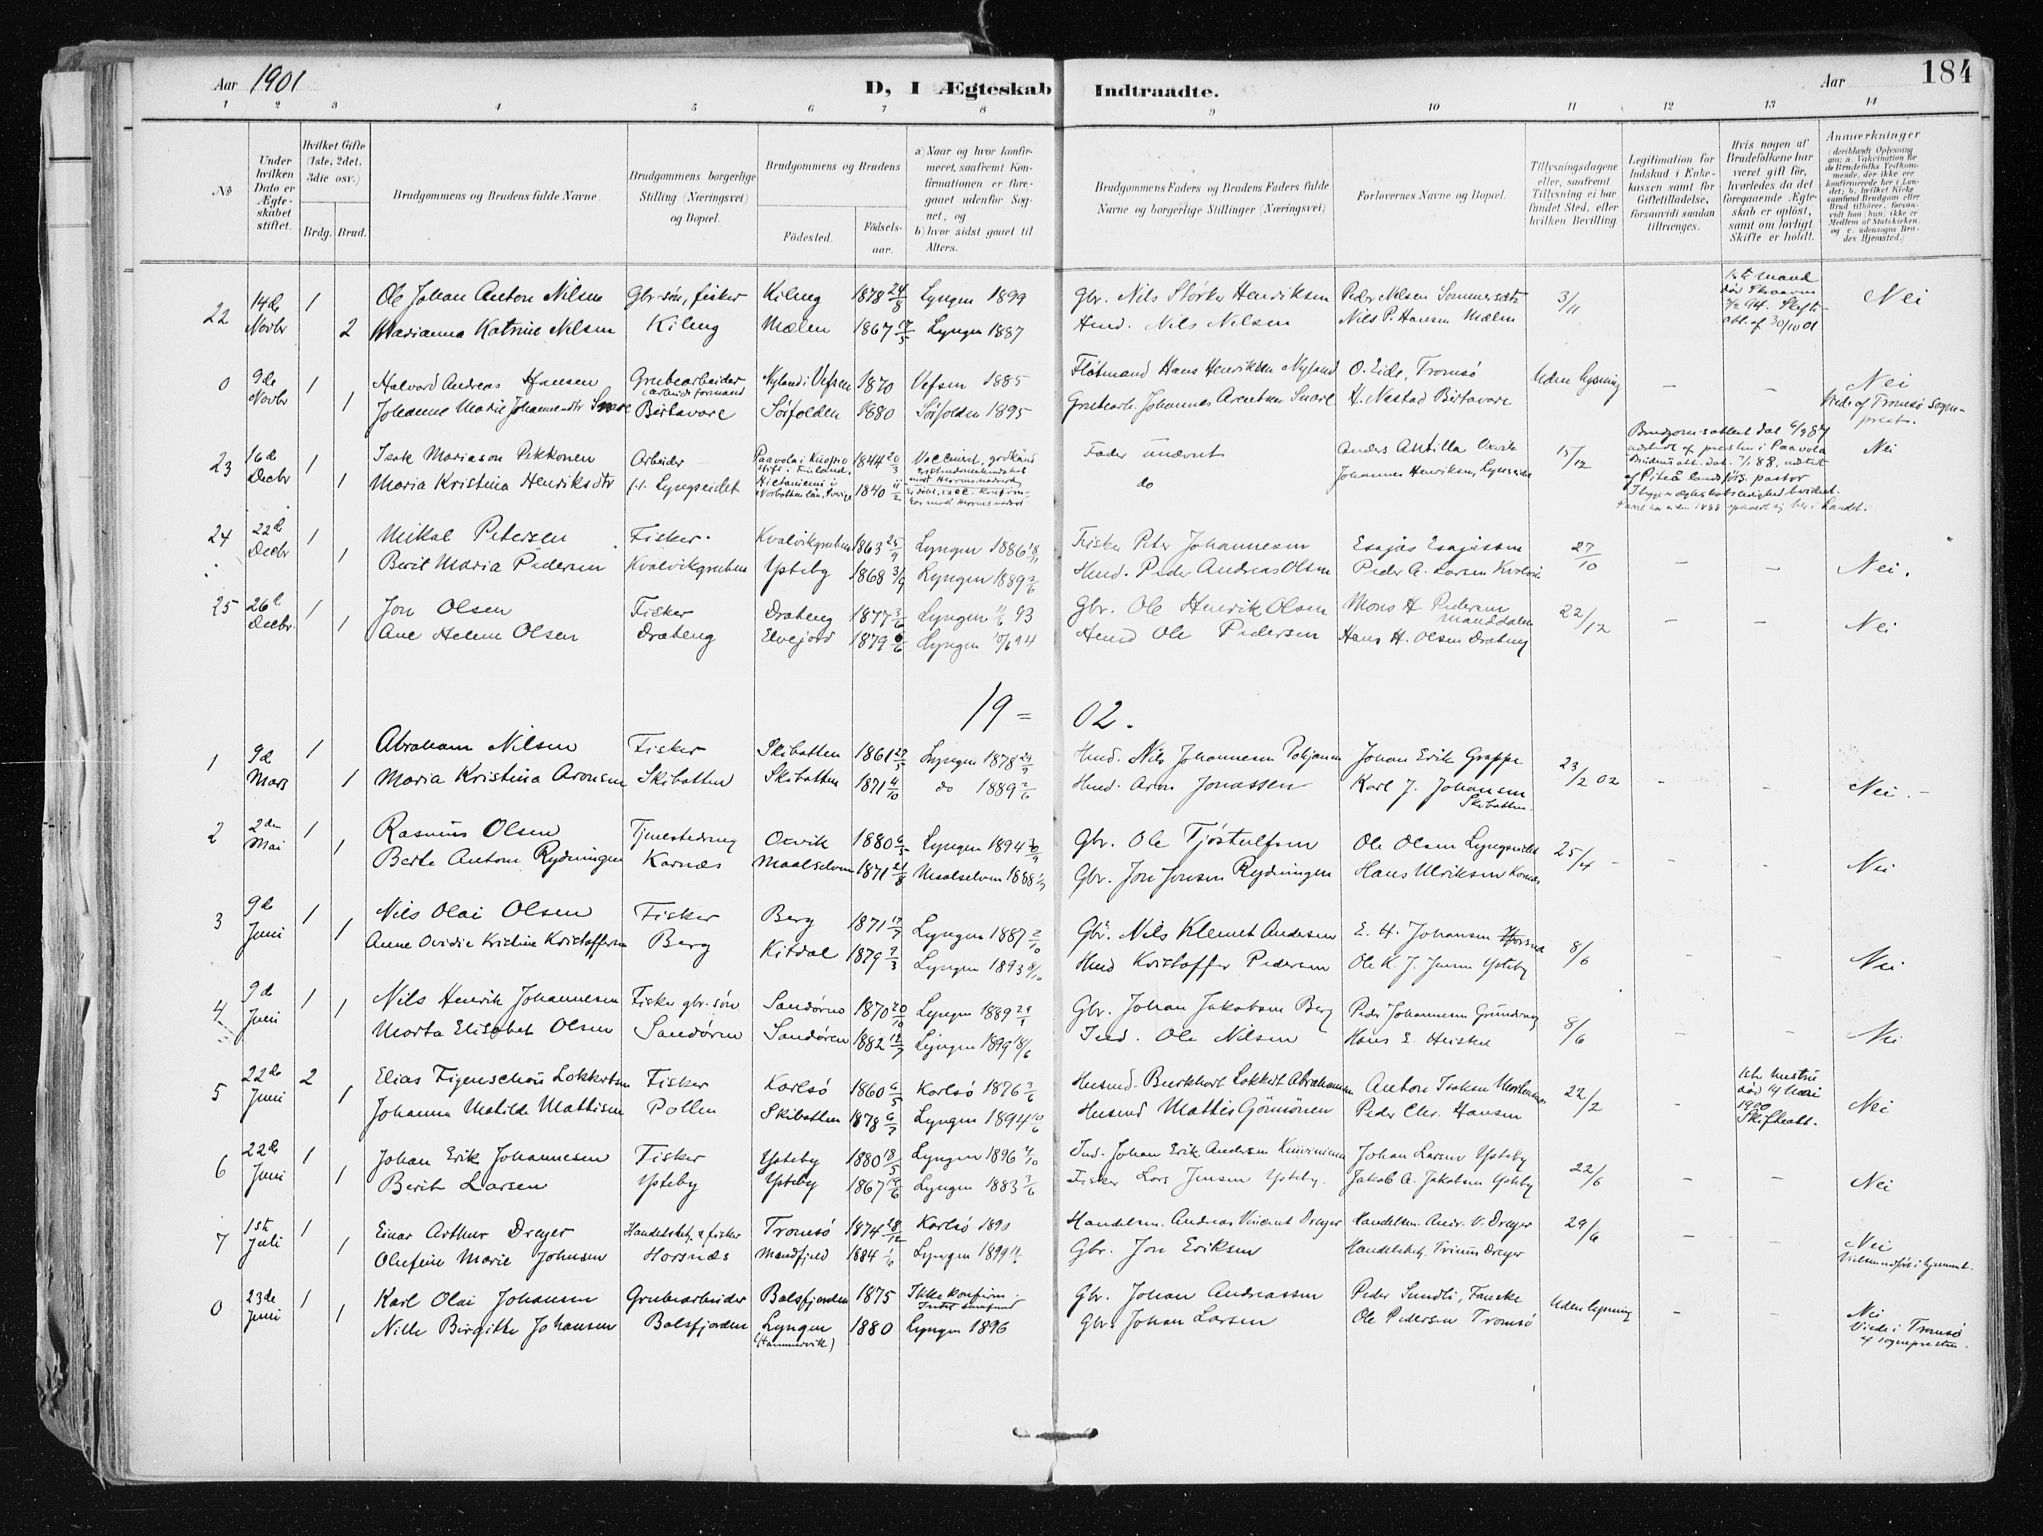 Aar 1901 D, I Ægteskab Indtraadte. Aar 184
1 2 3 4 5 6 7 8 9 10 11 12 13 14
№ Under hvilken Dato er Ægteskabet stiftet. Hvilket Gifte (1ste, 2det, 3die osv.) Brdg. Brud. Brudgommens og Brudens fulde Navne. Brudgommens borgerlige Stilling (Næringsvei) og Bopæl. Brudgommens og Brudens Fødested. Fødsels-aar. a) Naar og hvor konfirmeret, saafremt Konfirmationen er foregaaet udenfor Sognet, og b) hvor sidst gaaet til Alters. Brudgommens Faders og Brudens Faders fulde Navne og borgerlige Stillinger (Næringsvei) Forlovernes Navne og Bopæl. Tillysningsdagene eller, saafremt Tillysning ei har fundet Sted, efter hvilken Bevilling Legitimation for Indskud i Enkekassen samt for Giftetilladelse, forsaavidt saadan tiltrænges. Hvis nogen af Brudefolkene har været gift før, hvorledes da det foregaaende Ægteskab er opløst, samt om lovligt Skifte er holdt. Anmerkninger
22 14de Novbr 1 Ole Johan Anton Nilsen Gbr-søn, fisker Kileng 1878 24/8 Lyngen 1899 Gbr. Nils Størker Henriksen Peder Nilsen Sommersæt 3/11 1ste mand død Skifteatt. af 30/10 01 Nei
2 Marianna Katrine Nilsen Kileng Mælen 1867 17/5 Lyngen 1887 Husd. Nils Nilsen Nils P. Hansen Mælen
0 9de Novbr 1 Halvard Andreas Hansen Grubearbeider (arbeidsformand) Nyland i Vefsen 1870 Vefsen 1885 Fløtmand Hans Henriksen Nyland O. Eide, Tromsø Uden lysning – – Nei
1 Johanne Marie Johannesdtr Snare Birtavare Sørfolden 1880 Sørfolden 1895 Grubearb. Johannes Arentsen Snare H. Nestad Birtavare Viede af Tromsø Sogneprest.
23 16de Decbr 1 Isak Mariason Pekkonen Arbeider Paavola i Kuopio Stift i Finland 1844 20/3 Fader unævnt Anders Antilla Oxvik 15/12 Nei
1 Maria Kristina Henriksdtr f.t. Lyngseidet Hietaniemi i Norbottens län, Sverige 1840 11/2 do Johannes Henriksen, Lyngseidet
24 22de Decbr 1 Mikal Petersen Fisker Kvalvikgruben 1863 25/9 Lyngen 1886 Fisker Peter Johannesen Esajas Esajassen 27/10 – – Nei.
1 Berit Maria Pedersen Kvalvikgruben Ysteby 1868 3/9 Lyngen 1889 Husd. Peder Andreas Olsen Peder A. Larsen Kvalvik
25 26de Decbr. 1 Jon Olsen Fisker Drateng 1877 3/6 Lyngen 93 Gbr. Ole Henrik Olsen Mons H Pedersen Manddalen 22/12 – – Nei
1 Ane Helene Olsen Drateng Elvejord 1879 Lyngen 94 Husd Ole Pedersen Hans H. Olsen Drateng
19 = 02.
1 9de Mars 1 Abraham Nilsen Fisker Skibotten 1861 Lyngen 1878 Husd. Nils Johannesen Pohjanen Johan Erik Grape 23/2 02 – – Nei.
1 Maria Kristina Aronsen Skibotten Skibotten 1871 4/10 do 1889 Husd. Aron Jonassen Karl J. Johansen Skibotten
2 2den Mai 1 Rasmus Olsen Tjenestedreng Oxvik 1880 Lyngen 1894 Gbr. Ole Tjøstulfsen Ole Olsen Lyngseidet 25/4 – – Nei
1 Berte Antone Rydningen Karnæs Maalselven 1871 21/8 Maalselven 1888 Gbr. Jon Jonsen Rydningen Hans Ulriksen Karnæs
3 9de Juni 1 Nils Olai Olsen Fisker Berg 1871 17/7 Lyngen 1887 2/10 Gbr. Nils Klemet Andersen E. H. Johansen 8/6 – – Nei
1 Anne Ovidie Kristine Kristoffersen Berg Kitdal 1879 7/3 Lyngen 1893 8/10 Husd Kristoffer Pedersen Ole K. J. Jensen Ysteby
4 9de Juni 1 Nils Henrik Johannesen Fisker gbr. søn Sandøren 1870 20/10 Lyngen 1889 Gbr. Johan Jakobsen Berg Peder Johannesen Grundvaag 8/6 – – Nei
1 Marta Elisabet Olsen Sandøren Sandøren 1882 Lyngen 1899 18/6 Ind. Ole Nilsen Hans E. Heiskel
5 22de Juni 2 Elias Figenschou Lokkertsen Fisker Karlsø 1860 6/5 Karlsø 1876 Husmd. Burkhart Lokkert Abrahamsen Anton Isaksen 22/2 – 1ste hustru død 14 Mari 1900 Skifteatt. Nei
1 Johanna Matilde Mattisen Pollen Skibotten 1878 6/7 Lyngen 1894 Husmd Mattis Gjømønen Peder Chr. Hansen
6 22de Juni 1 Johan Erik Johannesen Fisker Ysteby 1880 18/5 Lyngen 1896 Ind. Johan Erik Andersen Johan Larsen Ysteby 22/6 – – Nei
1 Berit Larsen Ysteby Ysteby 1867 Lyngen 1883 3/6 Fisker Lars Jensen Ysteby. Jakob A. Jakobsen Ysteby
7 1ste Juli 1 Einar Arthur Dreyer Handelsbetj. & fisker Tromsø 1874 28/12 Karlsø 1890 Handelsm. Andreas Vincent Dreyer Handelsm. Andr. V. Dreyer 29/6 – – Nei
1 Olufine Marie Johnsen Horsnæs Mandfjeld 1884 Lyngen 1899 Gbr. Jon Eriksen Handelsbetj. Trinus Dreyer Vielsen udført i hjemmet.
0 23de Juni 1 Karl Olai Johansen Grubearbeider Balsfjorden 1875 Ikke konfirm. Gbr. Johan Andreassen Peder Sundli, Fauske Uden lysning – – Nei
1 Nille Birgitte Johansen Balsfjorden Lyngen (Hammervik) 1880 Lyngen 1896 Gbr. Johan Larsen Ole Pedersen Tromsø Viede i Tromsø af sognepresten.